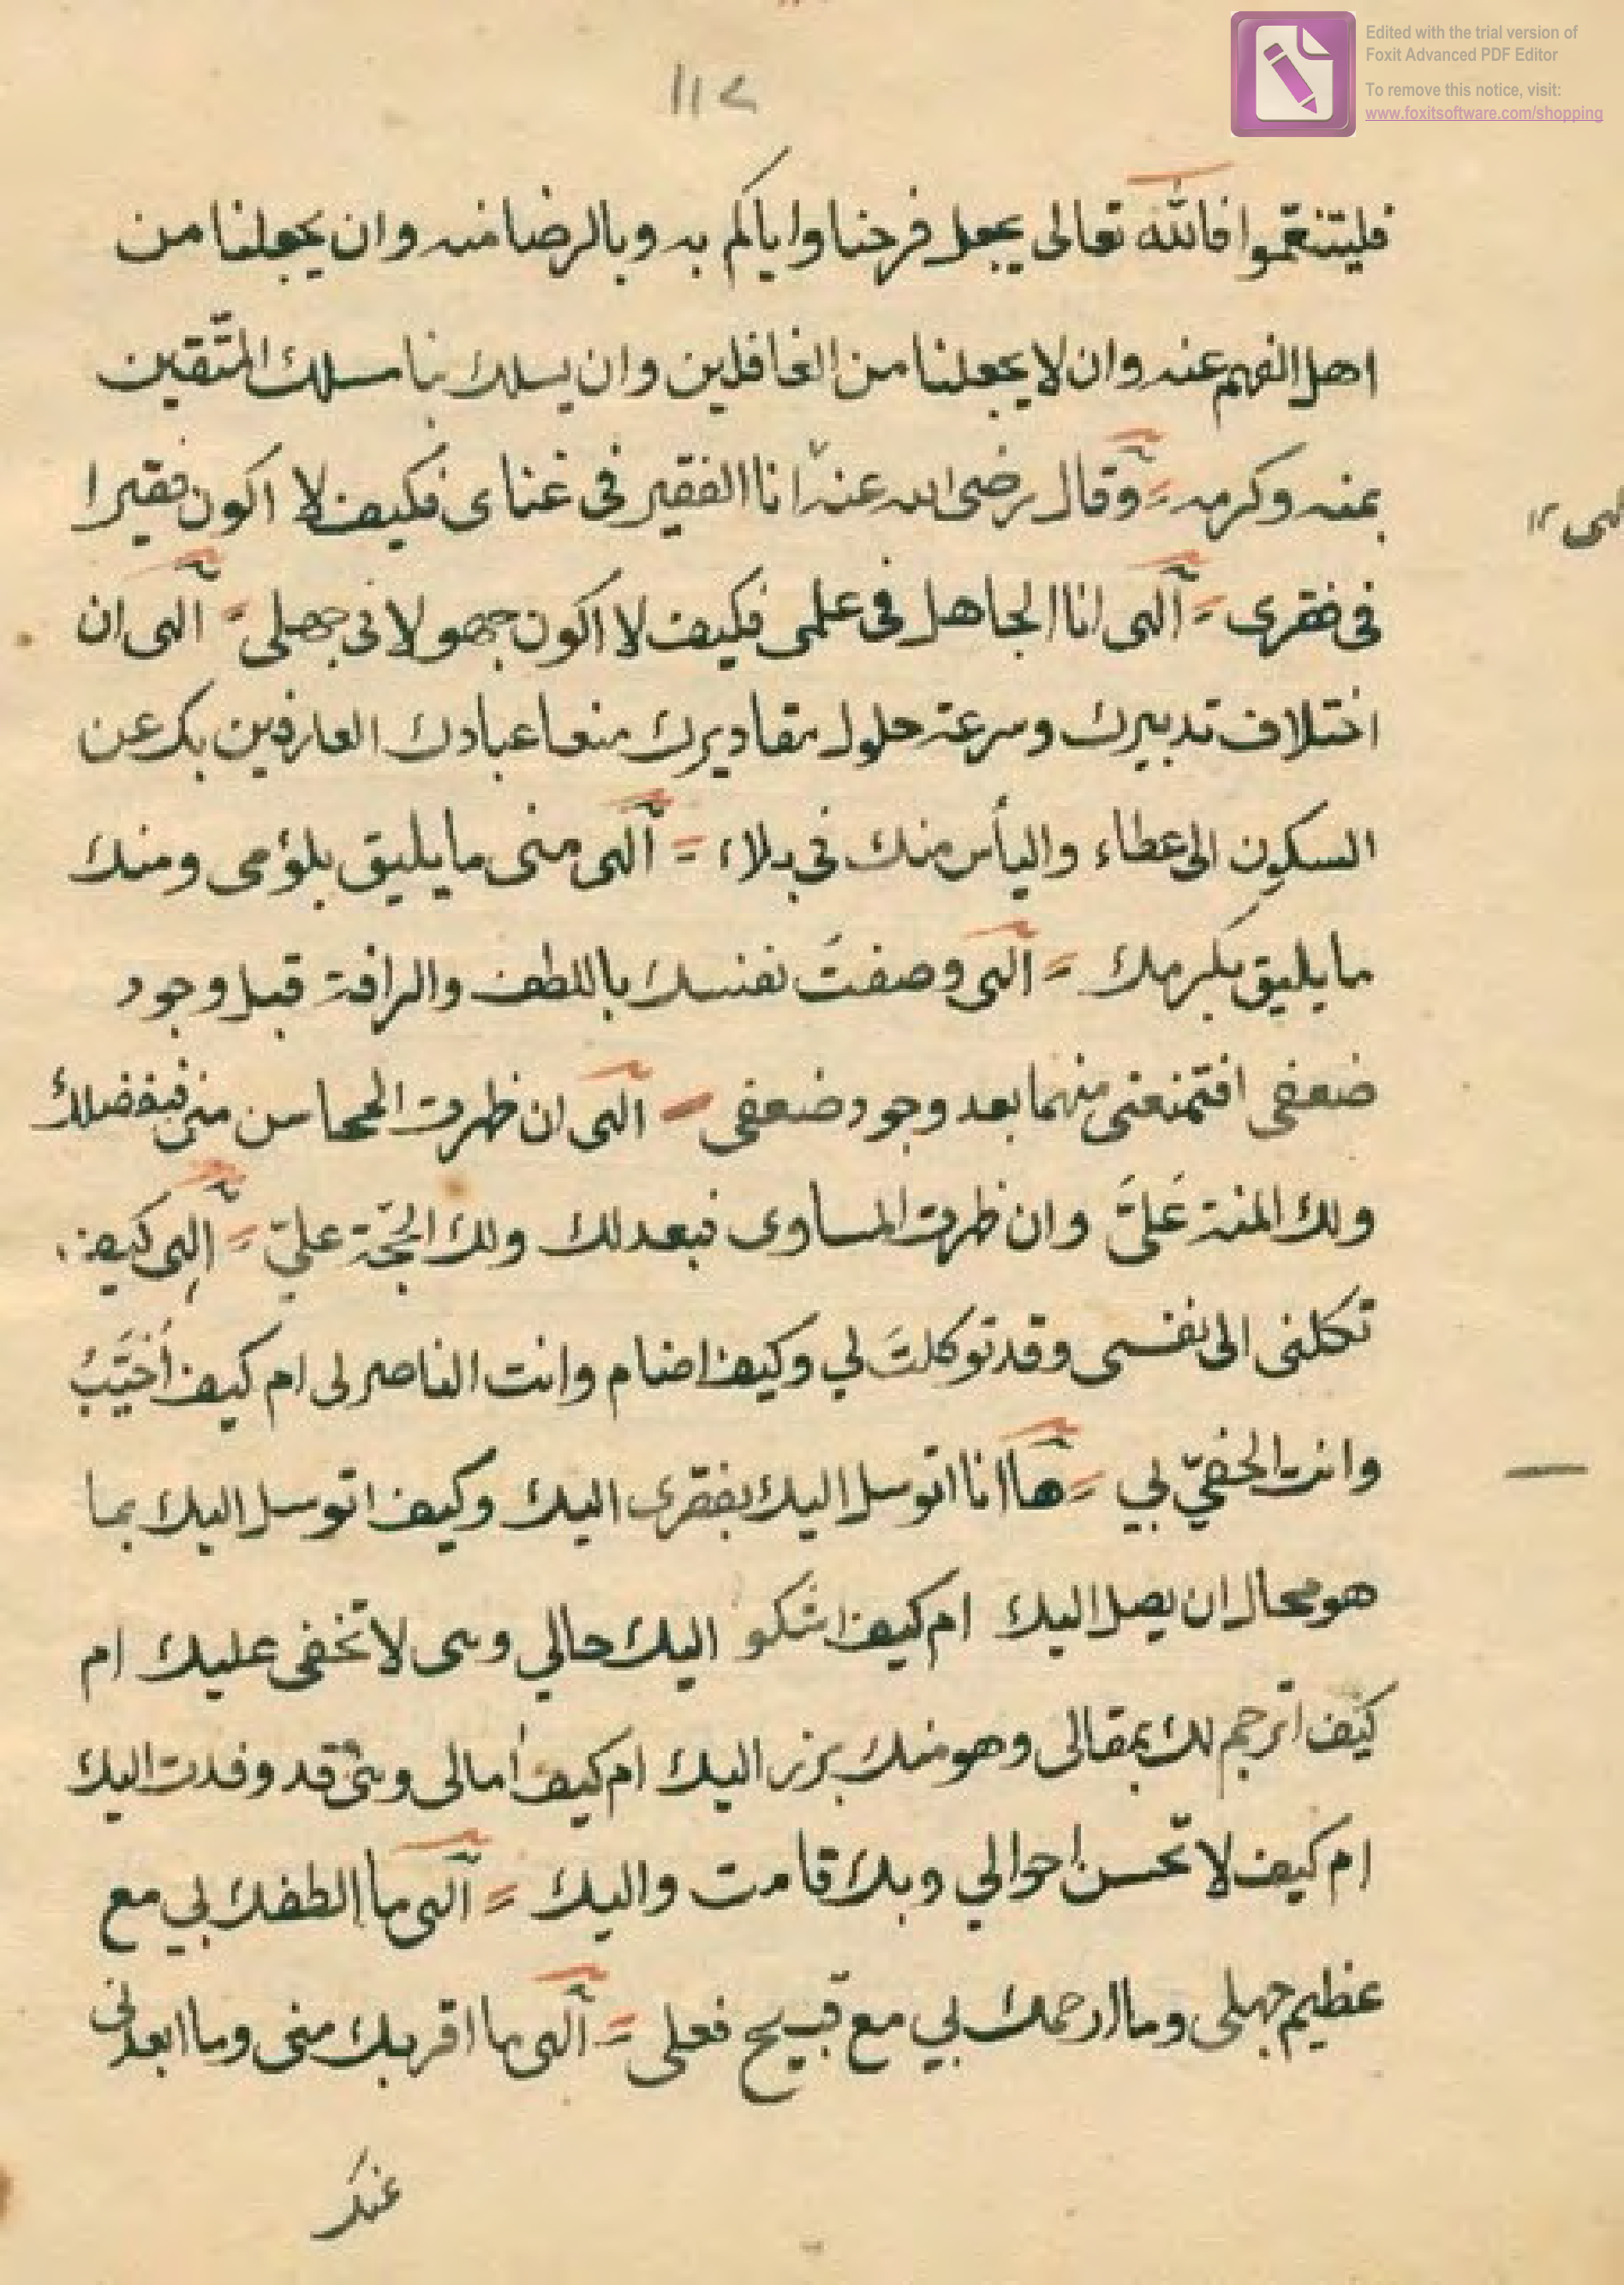 Edited with the trial version of
Foxit Advanced PDF Editor
To remove this notice, visit:
www.foxitsoftware.com/shopping
١١٢
فليتنعموا فالله تعالى يجعل فرحنا واياكم به وبالرضا منه وان يجعلنا من
اهل الفهم عنه وان لا يجعلنا من الغافلين وان يسلك بنا مسلك المتّقين
بمنه وكرمه وقال رضى الله عنه انا الفقير فى غناى فكيف لا اكون فقيرا
الهى
فى فقرى الهى انا الجاهل فى علمى فكيف لا اكون جهولا فى جهلى الهى ان
اختلاف تدبيرك وسرعة حلول مقاديرك منعا عبادك العارفين بك عن
السكون الى عطاء واليأس منك فى بلاء الهى منى ما يليق بلؤمى ومنك
ما يليق بكرمك الهى وصفتَ نفسك باللطف والرافة قبل وجود
ضعفى افتمنعنى منهما بعد وجود ضعفى الهى ان ظهرت المحاسن منى فبفضلك
ولك المنة عَلىَّ وان ظهرت المساوى فبعدلك ولك الحجّة عليّ الهى كيف
تكلنى الى نفسى وقد توكلتَ لي وكيف اضام وانت الناصر لى ام كيف اُخَيَّبُ
وانت الحفيّ بي ها انا اتوسل اليك بفقرى اليك وكيف اتوسل اليك بما
هو محال ان يصل اليك ام كيف اشكو اليك حالي وهى لا تخفى عليك ام
كيف اترجم لك بمقالى وهو منك برز اليك ام كيف اٰمالى وهى قد وفدت اليك
ام كيف لا تحسن احوالي وبك قامت واليك الهى ما الطفك بي مع
عظيم جهلى وما ارحمك بي مع قبيح فعلى الهى ما اقربك منى وما ابعدنى
عنك